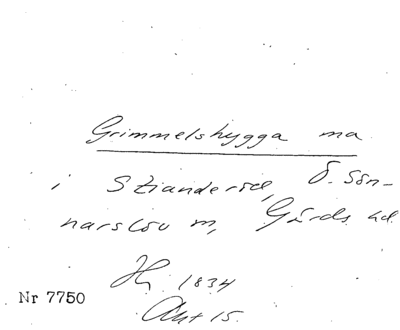 Grimmelshygga ma
i Stianderöd, Ö. Sön-
narslöv m, Gärds hd
Hj 1834
Akt 15.
Nr 7750